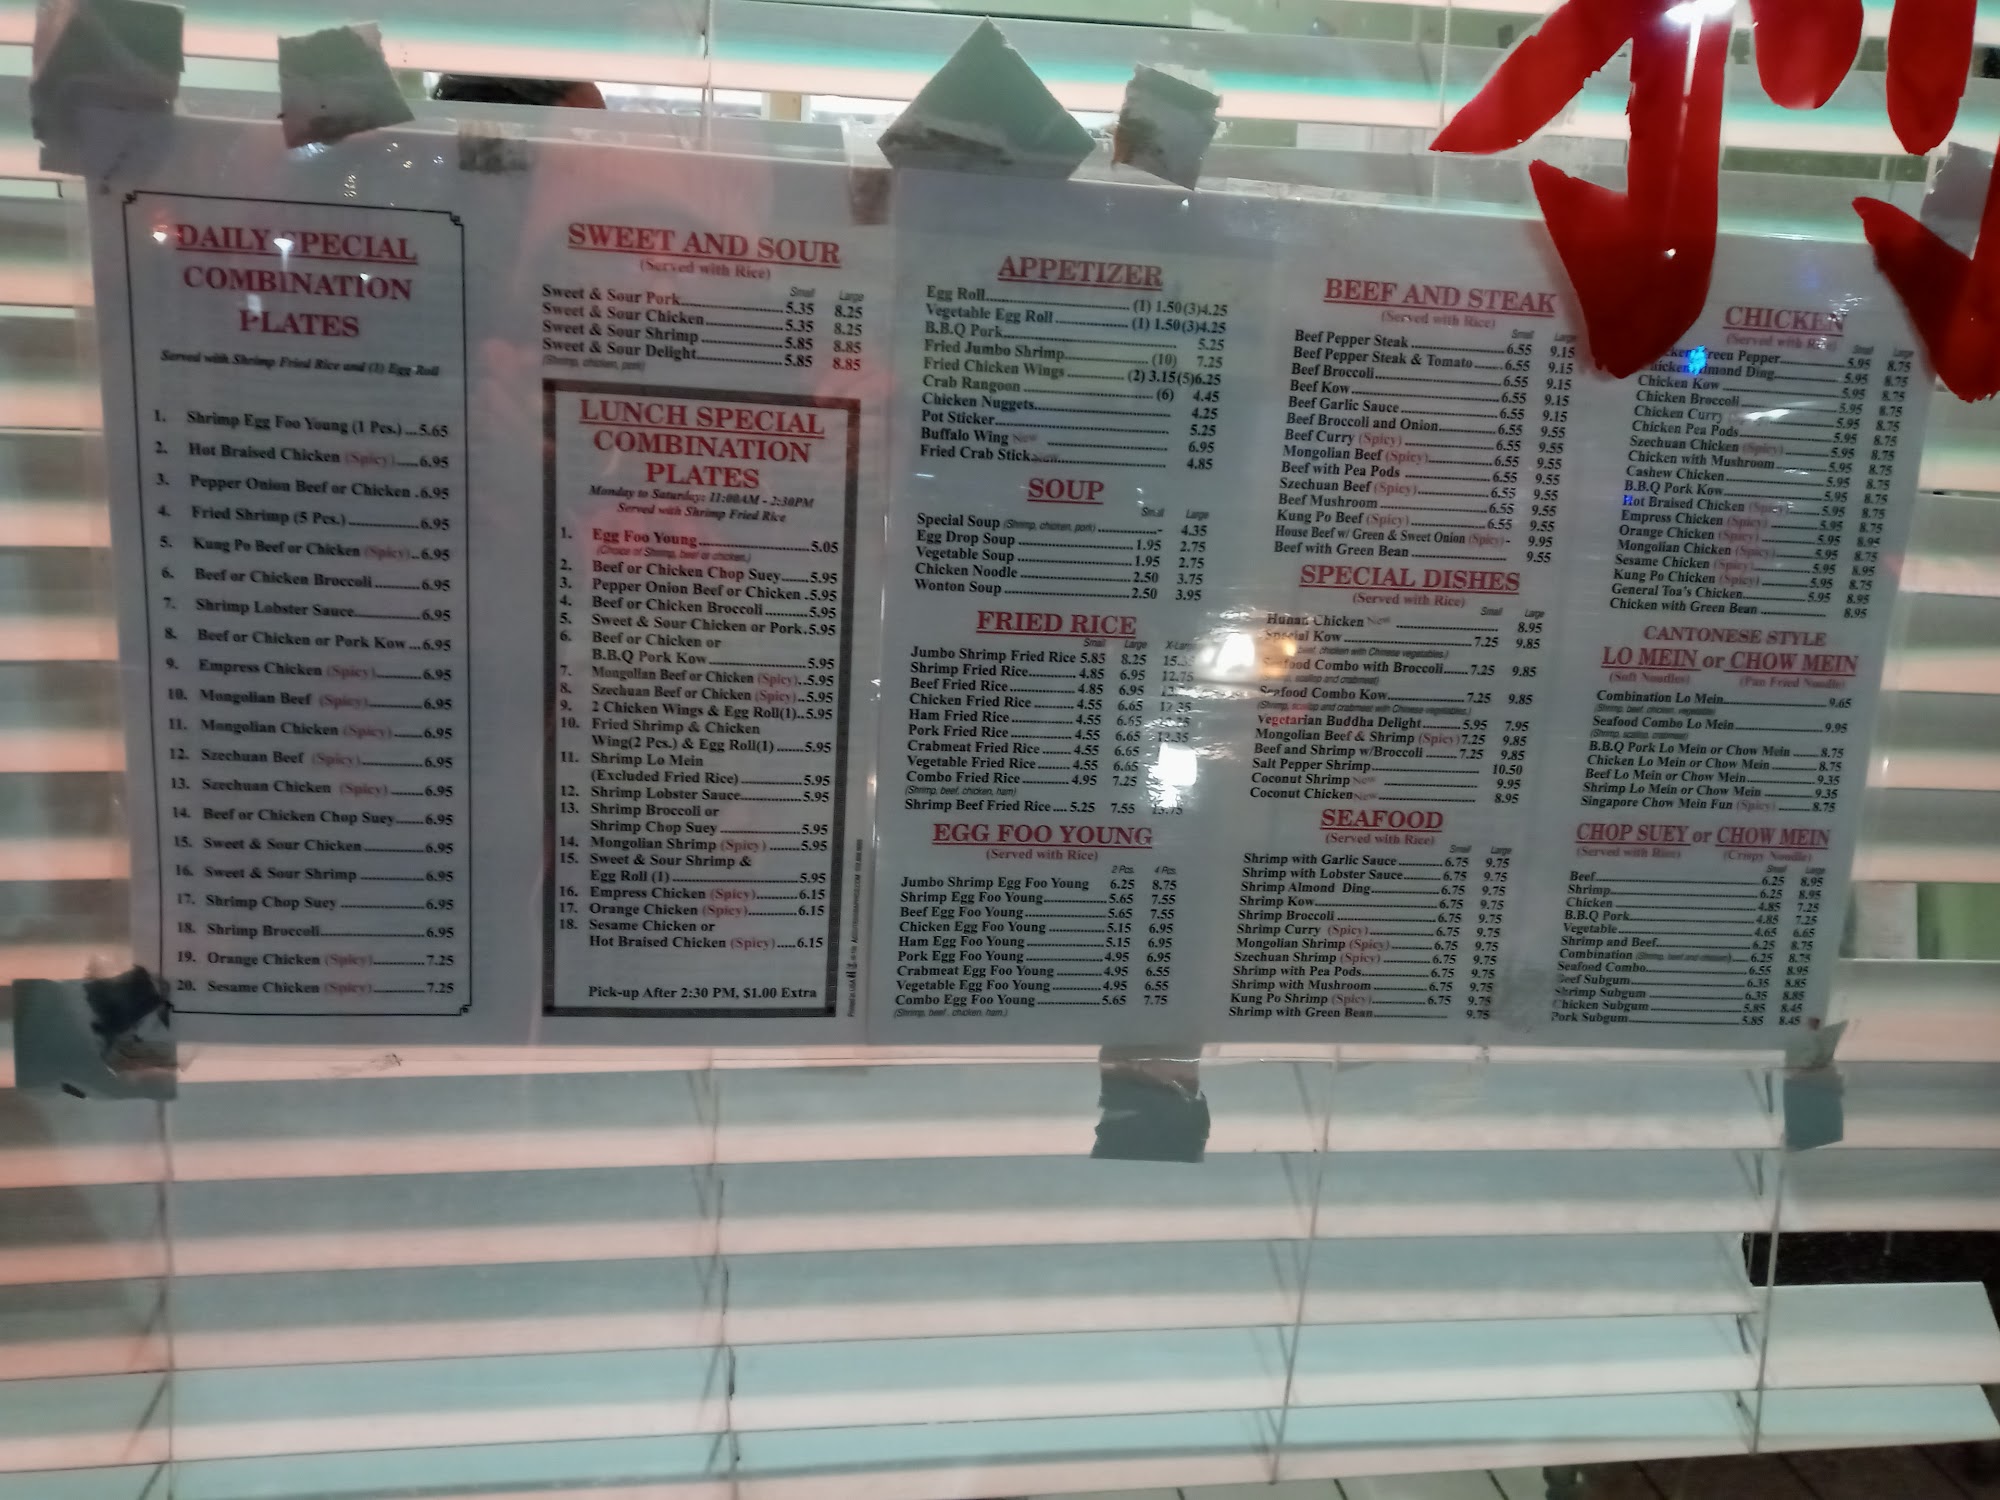 DAILY SPECIAL
COMBINATION
PLATES
Served with Shrimp Fried Rice and (1) Egg Roll
1. Shrimp Egg Foo Young (1 Pcs.)...5.65
2. Hot Braised Chicken (Spicy).....6.95
3. Pepper Onion Beef or Chicken .6.95
4. Fried Shrimp (5 Pcs.)...............6.95
5. Kung Po Beef or Chicken (Spicy)..6.95
6. Beef or Chicken Broccoli...........6.95
7. Shrimp Lobster Sauce...............6.95
8. Beef or Chicken or Pork Kow...6.95
9. Empress Chicken (Spicy)...........6.95
10. Mongolian Beef (Spicy)..............6.95
11. Mongolian Chicken (Spicy).........6.95
12. Szechuan Beef (Spicy)...............6.95
13. Szechuan Chicken (Spicy)..........6.95
14. Beef or Chicken Chop Suey......6.95
15. Sweet & Sour Chicken..............6.95
16. Sweet & Sour Shrimp...............6.95
17. Shrimp Chop Suey...................6.95
18. Shrimp Broccoli......................6.95
19. Orange Chicken (Spicy).............7.25
20. Sesame Chicken (Spicy).............7.25
SWEET AND SOUR
(Served with Rice)
Small Large
Sweet & Sour Pork.....................5.35 8.25
Sweet & Sour Chicken................5.35 8.25
Sweet & Sour Shrimp.................5.85 8.85
Sweet & Sour Delight.................5.85 8.85
(Shrimp, chicken, pork)
LUNCH SPECIAL
COMBINATION
PLATES
Monday to Saturday: 11:00AM - 2:30PM
Served with Shrimp Fried Rice
1. Egg Foo Young.....................5.05
(Choice of Shrimp, beef or chicken.)
2. Beef or Chicken Chop Suey......5.95
3. Pepper Onion Beef or Chicken .5.95
4. Beef or Chicken Broccoli.........5.95
5. Sweet & Sour Chicken or Pork.5.95
6. Beef or Chicken or
B.B.Q Pork Kow....................5.95
7. Mongolian Beef or Chicken (Spicy)..5.95
8. Szechuan Beef or Chicken (Spicy)..5.95
9. 2 Chicken Wings & Egg Roll(1)..5.95
10. Fried Shrimp & Chicken
Wing(2 Pcs.) & Egg Roll(1)......5.95
11. Shrimp Lo Mein
(Excluded Fried Rice)..............5.95
12. Shrimp Lobster Sauce.............5.95
13. Shrimp Broccoli or
Shrimp Chop Suey.................5.95
14. Mongolian Shrimp (Spicy).......5.95
15. Sweet & Sour Shrimp &
Egg Roll (1)...........................5.95
16. Empress Chicken (Spicy)..........6.15
17. Orange Chicken (Spicy)............6.15
18. Sesame Chicken or
Hot Braised Chicken (Spicy).....6.15
Pick-up After 2:30 PM, $1.00 Extra
APPETIZER
Egg Roll...............................(1) 1.50(3)4.25
Vegetable Egg Roll...............(1) 1.50(3)4.25
B.B.Q Pork...............................5.25
Fried Jumbo Shrimp.............(10) 7.25
Fried Chicken Wings.........(2) 3.15(5)6.25
Crab Rangoon.......................(6) 4.45
Chicken Nuggets........................4.25
Pot Sticker................................5.25
Buffalo Wing New.....................6.95
Fried Crab Stick New.................4.85
SOUP
Small Large
Special Soup (Shrimp, chicken, pork).......- 4.35
Egg Drop Soup.......................1.95 2.75
Vegetable Soup......................1.95 2.75
Chicken Noodle......................2.50 3.75
Wonton Soup.........................2.50 3.95
FRIED RICE
Small Large X-Large
Jumbo Shrimp Fried Rice 5.85 8.25
Shrimp Fried Rice...............4.85 6.95 12.75
Beef Fried Rice...................4.85 6.95
Chicken Fried Rice..............4.55 6.65
Ham Fried Rice...................4.55 6.65
Pork Fried Rice...................4.55 6.65 12.35
Crabmeat Fried Rice............4.55 6.65
Vegetable Fried Rice............4.55 6.65
Combo Fried Rice................4.95 7.25
(Shrimp, beef, chicken, ham)
Shrimp Beef Fried Rice....5.25 7.55 13.75
EGG FOO YOUNG
(Served with Rice)
2 Pcs. 4 Pcs.
Jumbo Shrimp Egg Foo Young 6.25 8.75
Shrimp Egg Foo Young............5.65 7.55
Beef Egg Foo Young................5.65 7.55
Chicken Egg Foo Young...........5.15 6.95
Ham Egg Foo Young................5.15 6.95
Pork Egg Foo Young................4.95 6.95
Crabmeat Egg Foo Young.........4.95 6.55
Vegetable Egg Foo Young.........4.95 6.55
Combo Egg Foo Young.............5.65 7.75
(Shrimp, beef, chicken, ham.)
BEEF AND STEAK
(Served with Rice)
Small Large
Beef Pepper Steak....................6.55 9.15
Beef Pepper Steak & Tomato.....6.55 9.15
Beef Broccoli..........................6.55 9.15
Beef Kow...............................6.55 9.15
Beef Garlic Sauce....................6.55 9.15
Beef Broccoli and Onion...........6.55 9.55
Beef Curry (Spicy)....................6.55 9.55
Mongolian Beef (Spicy)..............6.55 9.55
Beef with Pea Pods..................6.55 9.55
Szechuan Beef (Spicy)...............6.55 9.55
Beef Mushroom.......................6.55 9.55
Kung Po Beef (Spicy).................6.55 9.55
House Beef w/ Green & Sweet Onion (Spicy)- 9.95
Beef with Green Bean................ 9.55
SPECIAL DISHES
(Served with Rice)
Small Large
Hunan Chicken New................. 8.95
Special Kow...........................7.25 9.85
beef, chicken with Chinese vegetables.)
Seafood Combo with Broccoli......7.25 9.85
scallop and crabmeat)
Seafood Combo Kow................7.25 9.85
(Shrimp, scallop and crabmeat with Chinese vegetables.)
Vegetarian Buddha Delight........5.95 7.95
Mongolian Beef & Shrimp (Spicy)7.25 9.85
Beef and Shrimp w/Broccoli......7.25 9.85
Salt Pepper Shrimp.................. 10.50
Coconut Shrimp New................ 9.95
Coconut Chicken New............... 8.95
SEAFOOD
(Served with Rice)
Small Large
Shrimp with Garlic Sauce..........6.75 9.75
Shrimp with Lobster Sauce........6.75 9.75
Shrimp Almond Ding................6.75 9.75
Shrimp Kow...........................6.75 9.75
Shrimp Broccoli......................6.75 9.75
Shrimp Curry (Spicy)................6.75 9.75
Mongolian Shrimp (Spicy)..........6.75 9.75
Szechuan Shrimp (Spicy)...........6.75 9.75
Shrimp with Pea Pods...............6.75 9.75
Shrimp with Mushroom.............6.75 9.75
Kung Po Shrimp (Spicy).............6.75 9.75
Shrimp with Green Bean............ 9.75
CHICKEN
(Served with Rice)
Small Large
Green Pepper..............5.95 8.75
Almond Ding................5.95 8.75
Chicken Kow..........................5.95 8.75
Chicken Broccoli.....................5.95 8.75
Chicken Curry (Spicy)...............5.95 8.75
Chicken Pea Pods....................5.95 8.75
Szechuan Chicken (Spicy)..........5.95 8.75
Chicken with Mushroom............5.95 8.75
Cashew Chicken......................5.95 8.75
B.B.Q Pork Kow......................5.95 8.75
Hot Braised Chicken (Spicy).......5.95 8.75
Empress Chicken (Spicy)............5.95 8.75
Orange Chicken (Spicy).............5.95 8.95
Mongolian Chicken (Spicy).........5.95 8.75
Sesame Chicken (Spicy).............5.95 8.95
Kung Po Chicken (Spicy)............5.95 8.75
General Toa's Chicken..............5.95 8.95
Chicken with Green Bean........... 8.95
CANTONESE STYLE
LO MEIN or CHOW MEIN
(Soft Noodles) (Pan Fried Noodle)
Combination Lo Mein....................9.65
(Shrimp, beef, chicken, vegetable)
Seafood Combo Lo Mein................9.95
(Shrimp, scallop, crabmeat)
B.B.Q Pork Lo Mein or Chow Mein......8.75
Chicken Lo Mein or Chow Mein.........8.75
Beef Lo Mein or Chow Mein..............9.35
Shrimp Lo Mein or Chow Mein..........9.35
Singapore Chow Mein Fun (Spicy).......8.75
CHOP SUEY or CHOW MEIN
(Served with Rice) (Crispy Noodle)
Small Large
Beef.....................................6.25 8.95
Shrimp..................................6.25 8.95
Chicken.................................4.85 7.25
B.B.Q Pork.............................4.85 7.25
Vegetable..............................4.65 6.65
Shrimp and Beef......................6.25 8.75
Combination (Shrimp, beef and chicken)....6.25 8.75
Seafood Combo.......................6.55 8.95
Beef Subgum..........................6.35 8.85
Shrimp Subgum.......................6.35 8.85
Chicken Subgum......................5.85 8.45
Pork Subgum..........................5.85 8.45